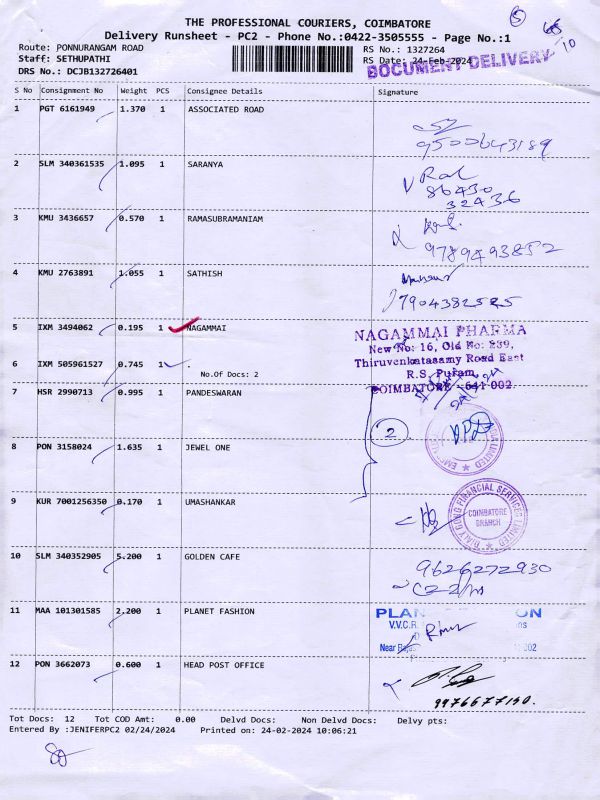 THE PROFESSIONAL COURIERS, COIMBATORE
Delivery Runsheet - PC2 - Phone No.:0422-3505555 - Page No.:1
Route: PONNURANGAM ROAD
Staff: SETHUPATHI
DRS No.: DCJB132726401
RS No.: 1327264
RS Date: 24-Feb-2024
DOCUMENT DELIVERY
5
10
S No Consignment No Weight PCS Consignee Details Signature
1 PGT 6161949 1.370 1 ASSOCIATED ROAD
9500643189
2 SLM 340361535 1.095 1 SARANYA
86430
32436
3 KMU 3436657 0.570 1 RAMASUBRAMANIAM
9789493852
4 KMU 2763891 1.055 1 SATHISH
7904382525
5 IXM 3494062 0.195 1 NAGAMMAI
NAGAMMAI PHARMA
New No: 16, Old No: 239,
Thiruvenkatasamy Road East
R.S. Puram,
COIMBATORE - 641 002.
6 IXM 505961527 0.745 1 .
No.Of Docs: 2
7 HSR 2990713 0.995 1 PANDESWARAN
2
8 PON 3158024 1.635 1 JEWEL ONE
9 KUR 7001256350 0.170 1 UMASHANKAR
FINANCIAL SERVICES LIMITED
COIMBATORE
BRANCH
10 SLM 340352905 5.200 1 GOLDEN CAFE
9626272930
11 MAA 101301585 2.200 1 PLANET FASHION
PLAN ON
V.V.C.R.
Near
002
12 PON 3662073 0.600 1 HEAD POST OFFICE
9976677150.
Tot Docs: 12 Tot COD Amt: 0.00 Delvd Docs: Non Delvd Docs: Delvy pts:
Entered By :JENIFERPC2 02/24/2024 Printed on: 24-02-2024 10:06:21